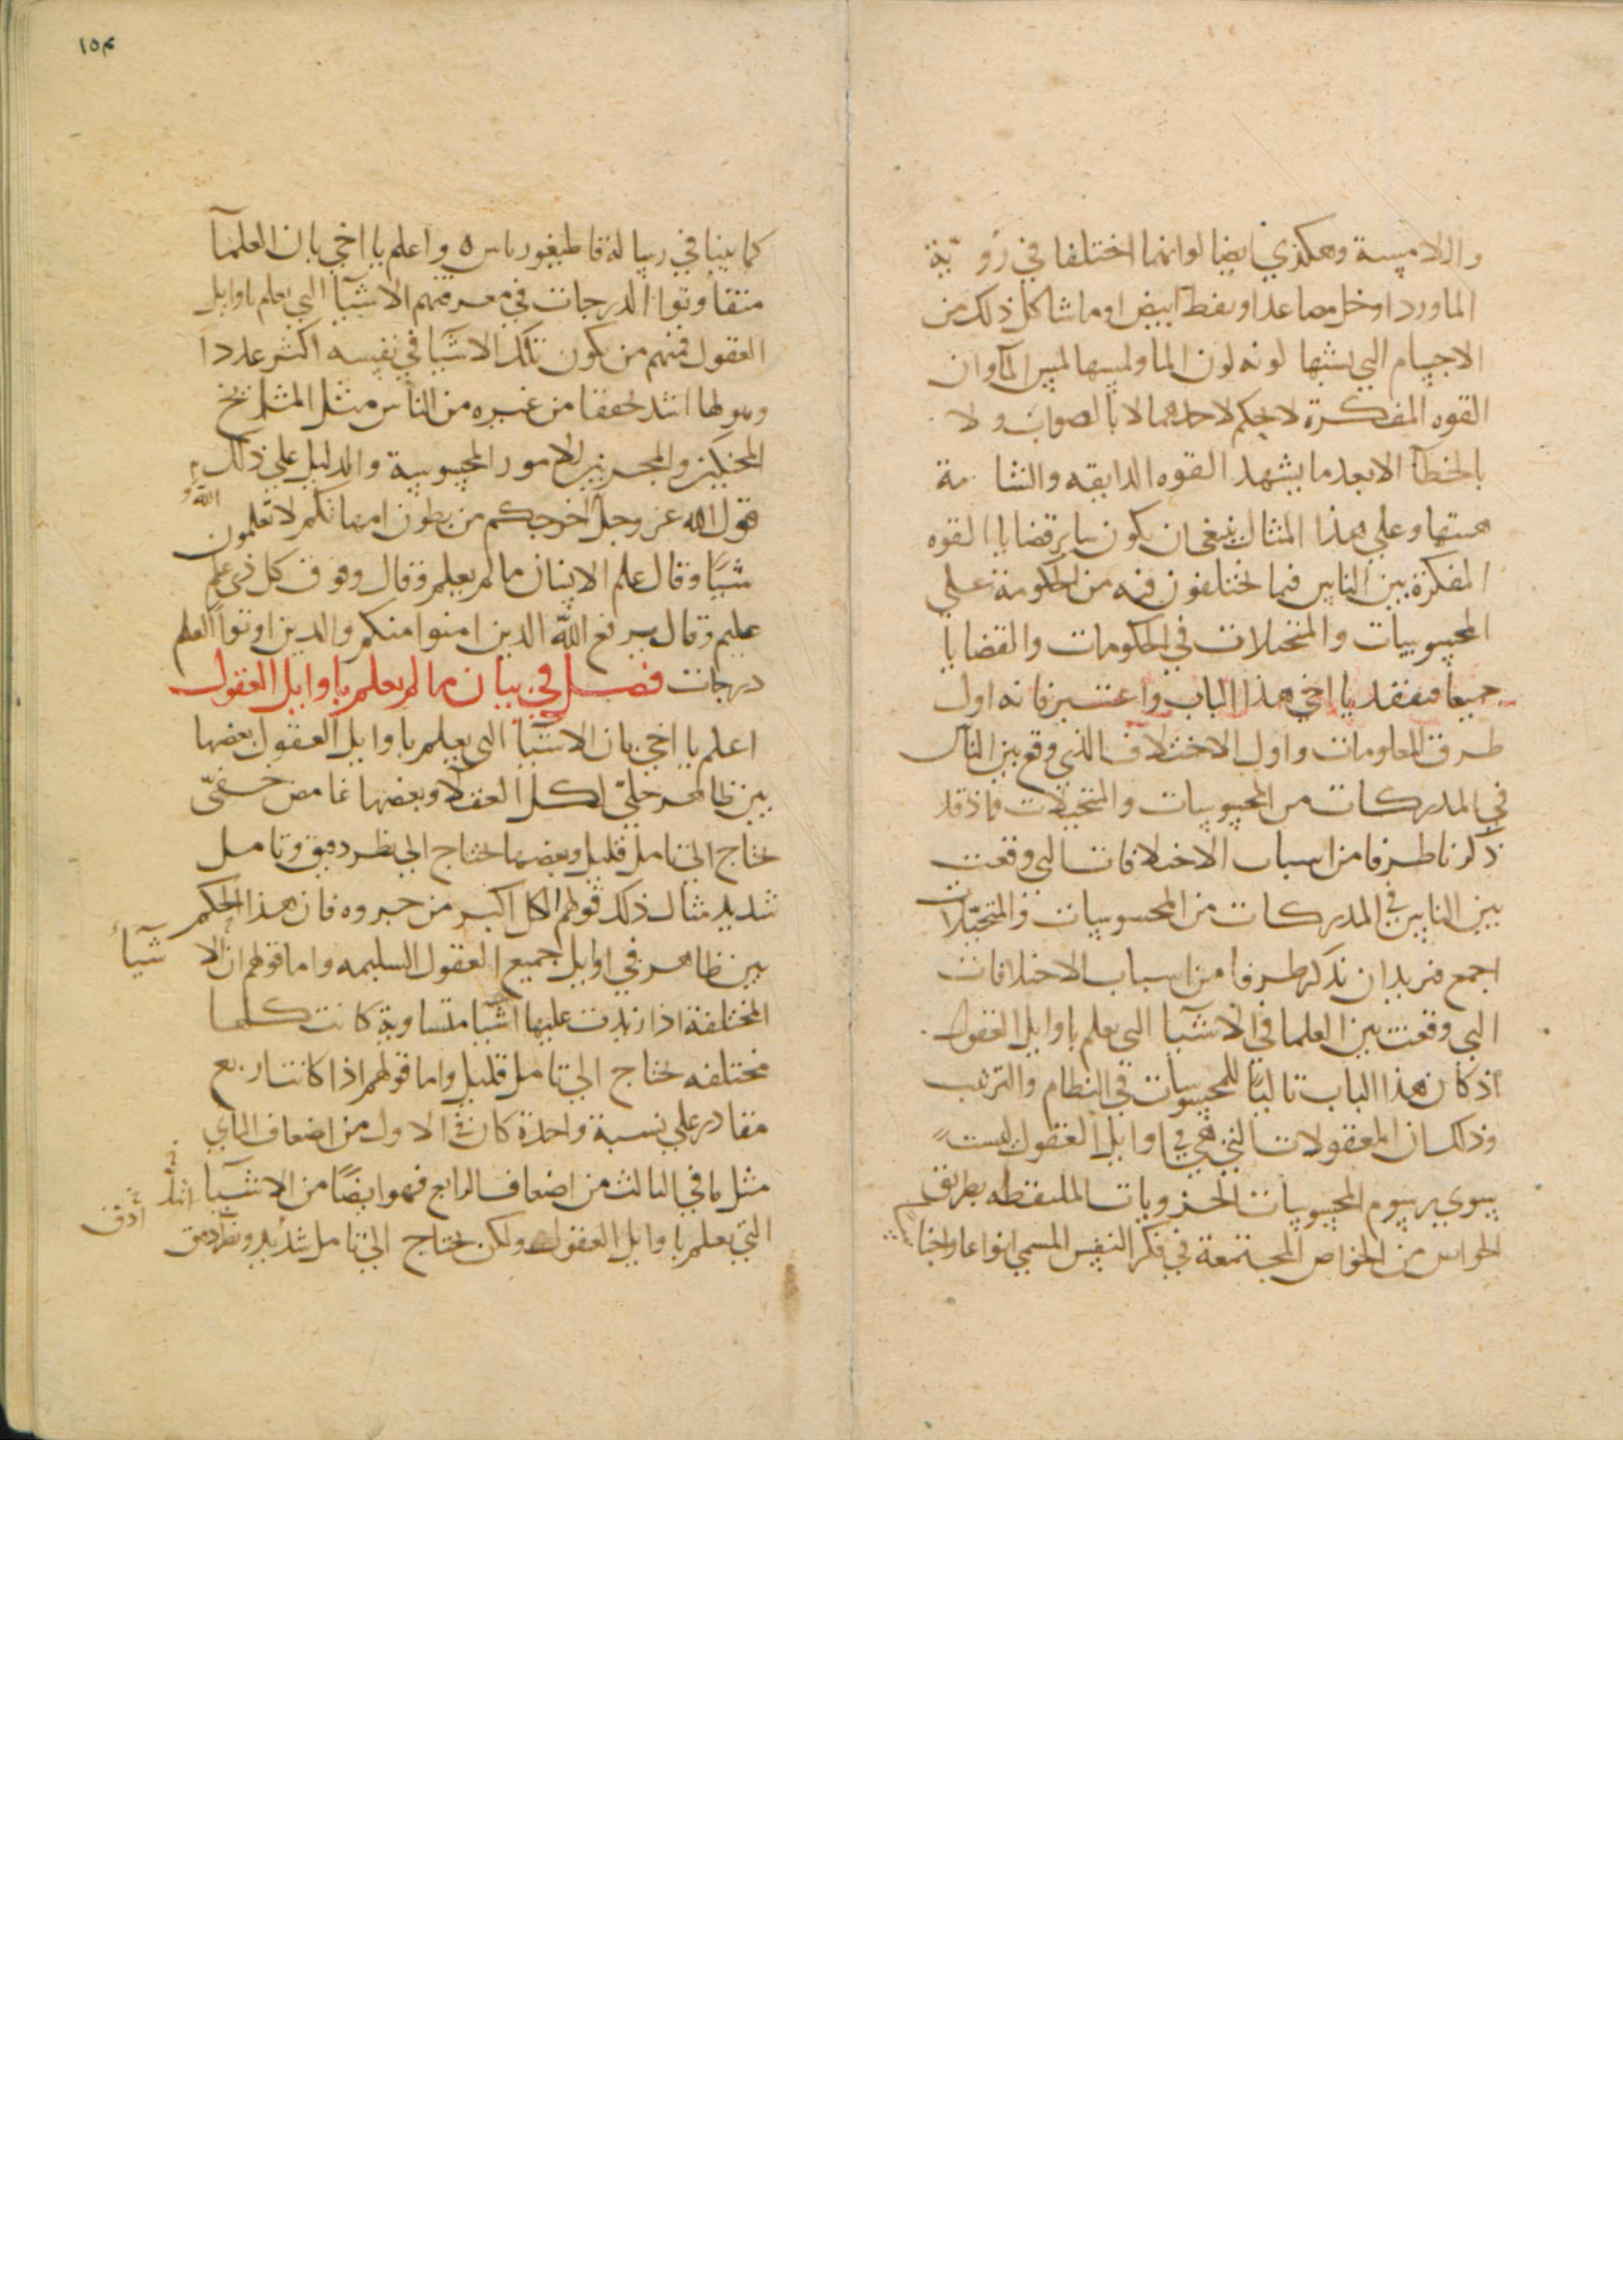 واللامسة وهكذي ايضا لوانهما اختلفا في رؤية
الماورد اوخل مصاعد او نفط ابيض او ما شاكل ذلك من
الاجسام التي يشبها لونه لون الما ولمسها لمس المآ وان
القوه المفكرة لا يحكم لاحدهما لا بالصواب ولا
بالخطآ الا بعد ما يشهد القوه الدايقه والشامة
وعلي هذا المثال ينبغي ان يكون ساير قضايا القوه
المفكرة بين الناس فيما يختلفون فيه من الحكومة علي
المحسوسات والمتخيلات في الحكومات والقضايا
جميعا فتفقد يا اخي هذا الباب واعتبر فانه اول
طرق المعلومات واول الاختلاف الذي وقع بين الناس
في المدركات من المحسوسات والمتخيلات واذ قد
ذكرنا طرفا من اسباب الاختلافات التي وقعت
بين الناس في المدركات من المحسوسات والمتخيلات
اجمع فنريد ان نذكر طرفا من اسباب الاختلافات
التي وقعت بين العلما في الاشيا التي يعلم باوايل العقول
اذ كان هذا الباب تاليا للمحسوسات في النظام والترتيب
وذلك ان المعقولات التي هي في اوايل العقول ليست
سوي رسوم المحسوسات الجزويات الملتقطه بطريق
الحواس من الخواص المجتمعة في فكر النفس المسمي انواعا واجنا
١٥٣
كما بينا في رسالة قاطيغورياس ه واعلم يا اخي بان العلمآ
متفاوتوا الدرجات في معرفتهم الاشيآ التي يعلم باوايل
العقول فمنهم من يكون تلك الاشيآ في نفسه اكثر عددا
وهو لها اشد تحققا من غيره من الناس مثل المشايخ
المحنكين والمجربين للامور المحسوسة والدليل علي ذلك
قول الله عز وجل والله اخرجكم من بطون امهاتكم لا تعلمون
شيئا وقال علم الانسان ما لم يعلم وقال وفوق كل ذي علم
عليم وقال يرفع الله الدين امنوا منكم والدين اوتوا العلم
درجات فصل في بيان ما لم يعلم باوايل العقول
اعلم يا اخي بان الاشيآ التي يعلم باوايل العقول بعضها
بين ظاهر جلي لكل العقلا وبعضها غامض خفي
يحتاج الي تامل قليل وبعضها يحتاج الي نظر دقيق وتامل
شديد مثال ذلك قولهم الكل اكبر من جزوه فان هذا الحكم
بين ظاهر في اوايل جميع العقول السليمه واما قولهم ان الاشيآء
المختلفة اذا زيدت عليها اشيا متساوية كانت كلها
مختلفه يحتاج الي تامل قليل واما قولهم اذا كانت اربع
مقادير علي نسبة واحدة كان في الاول من اضعاف الثاني
مثل ما في الثالث من اضعاف الرابع فهو ايضا من الاشيآ
التي يعلم باوايل العقول ولكن يحتاج الي تامل شديد ونظر دقيق
اشد
ادق